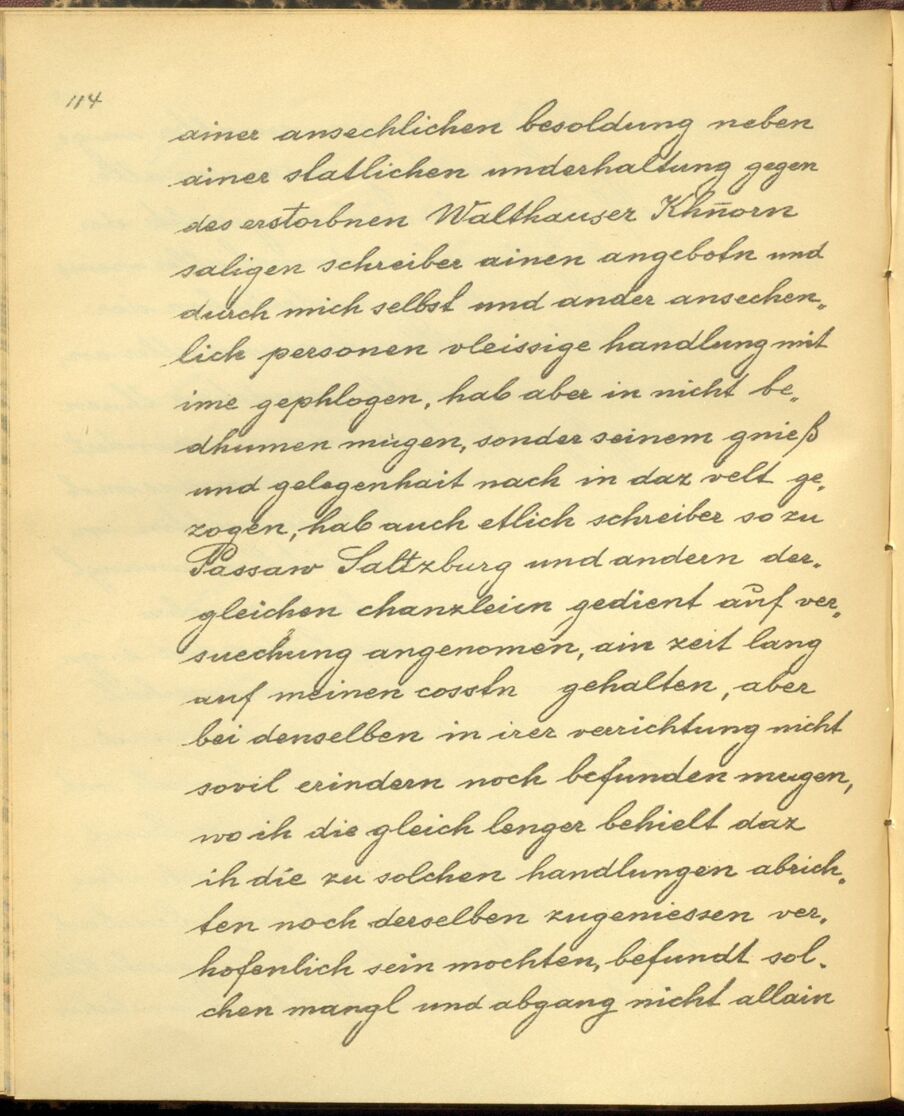 114
ainer ansechlichen besoldung neben
ainer statlichen underhaltung gegen
des erstorbnen Walthauser Khn̄orn
saligen schreiber ainen angebotn und
durch mich selbst und ander ansechen„
lich personen vleissige handlung mit
ime gephlogen, hab aber in nicht be„
dhumen mügen, sonder seinem gnieß
und gelegenhait nach in daz velt ge„
zogen, hab auch etlich schreiber so zu
Passaw Saltzburg und andern der„
gleichen chanzleien gedient auf ver„
suechung angenomen, ain zeit lang
auf meinen cosstn gehalten, aber
bei denselben in irer verrichtung nicht
sovil erindern noch befunden mugen,
wo ih die gleich lenger behielt daz
ih die zu solchen handlungen abrich„
ten noch derselben zugeniessen ver„
hofenlich sein mochten, befundt sol„
chen mangl und abgang nicht allain